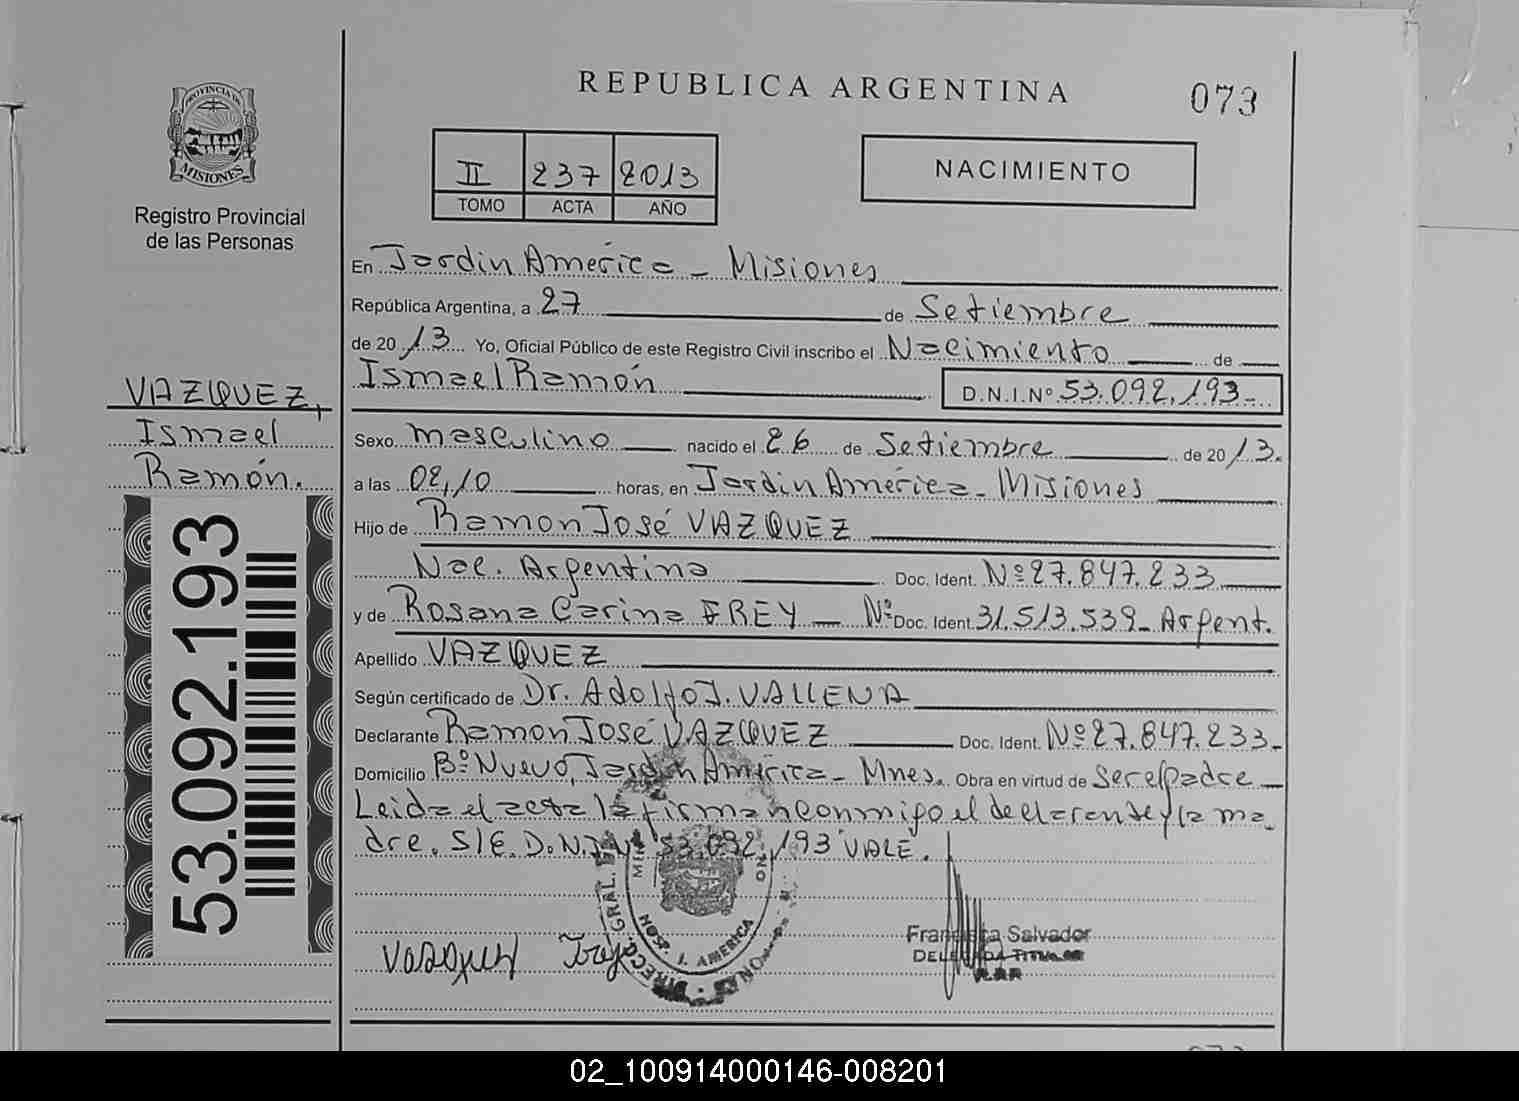 REPUBLICA ARGENTINA
073
PROVINCIA DE
MISIONES
Registro Provincial
de las Personas
II 237 2013
TOMO ACTA AÑO
NACIMIENTO
VAZQUEZ,
Ismael
Ramón.
53.092.193
En Jardin América - Misiones
República Argentina, a 27 de Setiembre
de 20 13 Yo, Oficial Público de este Registro Civil inscribo el Nacimiento de
Ismael Ramón D.N.I.Nº 53.092.193-
Sexo masculino nacido el 26 de Setiembre de 20 13.
a las 02,10 horas, en Jardin América - Misiones
Hijo de Ramon José VAZQUEZ
Nac. Argentina Doc. Ident. Nº 27.847.233
y de Rosana Carina FREY Nº Doc. Ident. 31.513.539- Argent.
Apellido VAZQUEZ
Según certificado de Dr. Adolfo J. VALLENA
Declarante Ramon José VAZQUEZ Doc. Ident. Nº 27.847.233-
Domicilio Bº Nuevo, Jardin América - Mnes. Obra en virtud de ser el padre
Leida el acta la firman conmigo el declarante y la ma
dre. S/E. D.N.I. Nº 53.092.193 VALE.
Vazquez
DIRECC. GRAL.
HOSP. J. AMERICA
Francisca Salvador
DELEGADA TITULAR
02_100914000146-008201